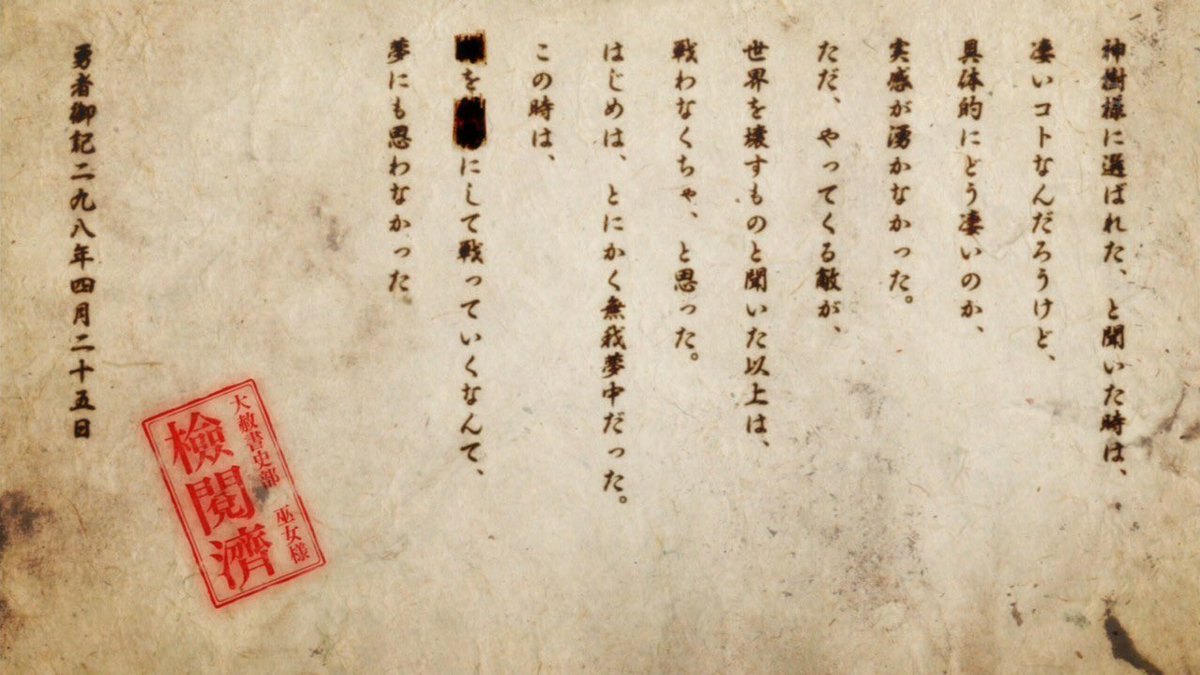 神樹様に選ばれた、と聞いた時は、
凄いコトなんだろうけど、
具体的にどう凄いのか、
実感が湧かなかった。
ただ、やってくる敵が、
世界を壊すものと聞いた以上は、
戦わなくちゃ、と思った。
はじめは、とにかく無我夢中だった。
この時は、
を にして戦っていくなんて、
夢にも思わなかった
勇者御記二九八年四月二十五日
大赦書史部 巫女様
検閲濟